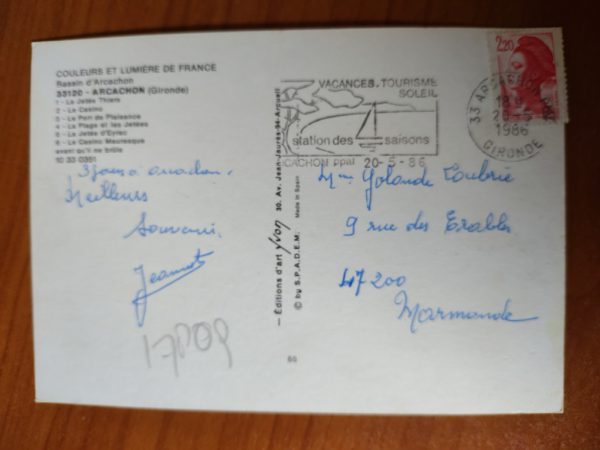 COULEURS ET LUMIÈRE DE FRANCE
Bassin d'Arcachon
33120 - ARCACHON (Gironde)
1 - La Jetée Thiers
2 - Le Casino
3 - Le Port de Plaisance
4 - La Plage et les Jetées
5 - La Jetée d'Eyrac
6 - Le Casino Mauresque
avant qu'il ne brûle
10 33 0351
3 jours à Arcachon.
Meilleurs
Souvenirs
Jeannot
17P09
— Éditions d'art yvon 30, Av. Jean-Jaurès-94-Arcueil
© by S.P.A.D.E.M. Made in Spain
VACANCES. TOURISME
SOLEIL
station des saisons
ARCACHON ppal 20-5-86
2,20
33 ARCACHON PPAL
18 H
20-5
1986
GIRONDE
Mme Yolande
9 rue des Erables
47200
Marmande